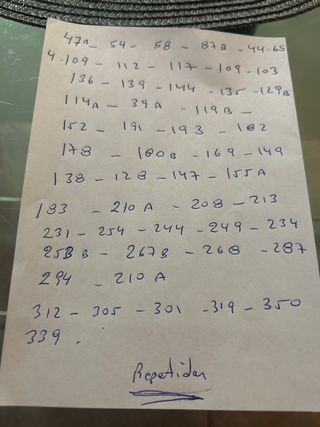 47A - 54 - 58 - 87B - 44-65
4-109 - 112 - 117 - 109 - 103
136 - 139 - 144 - 135 - 129B
114A - 39A - 119B -
152 - 191 - 193 - 182
178 - 180B - 169 - 149
138 - 128 - 147 - 155A
183 - 210A - 208 - 213
231 - 254 - 244 - 249 - 234
258B - 267B - 268 - 287
294 - 210A
312 - 305 - 301 - 319 - 350
339.
Repetidas